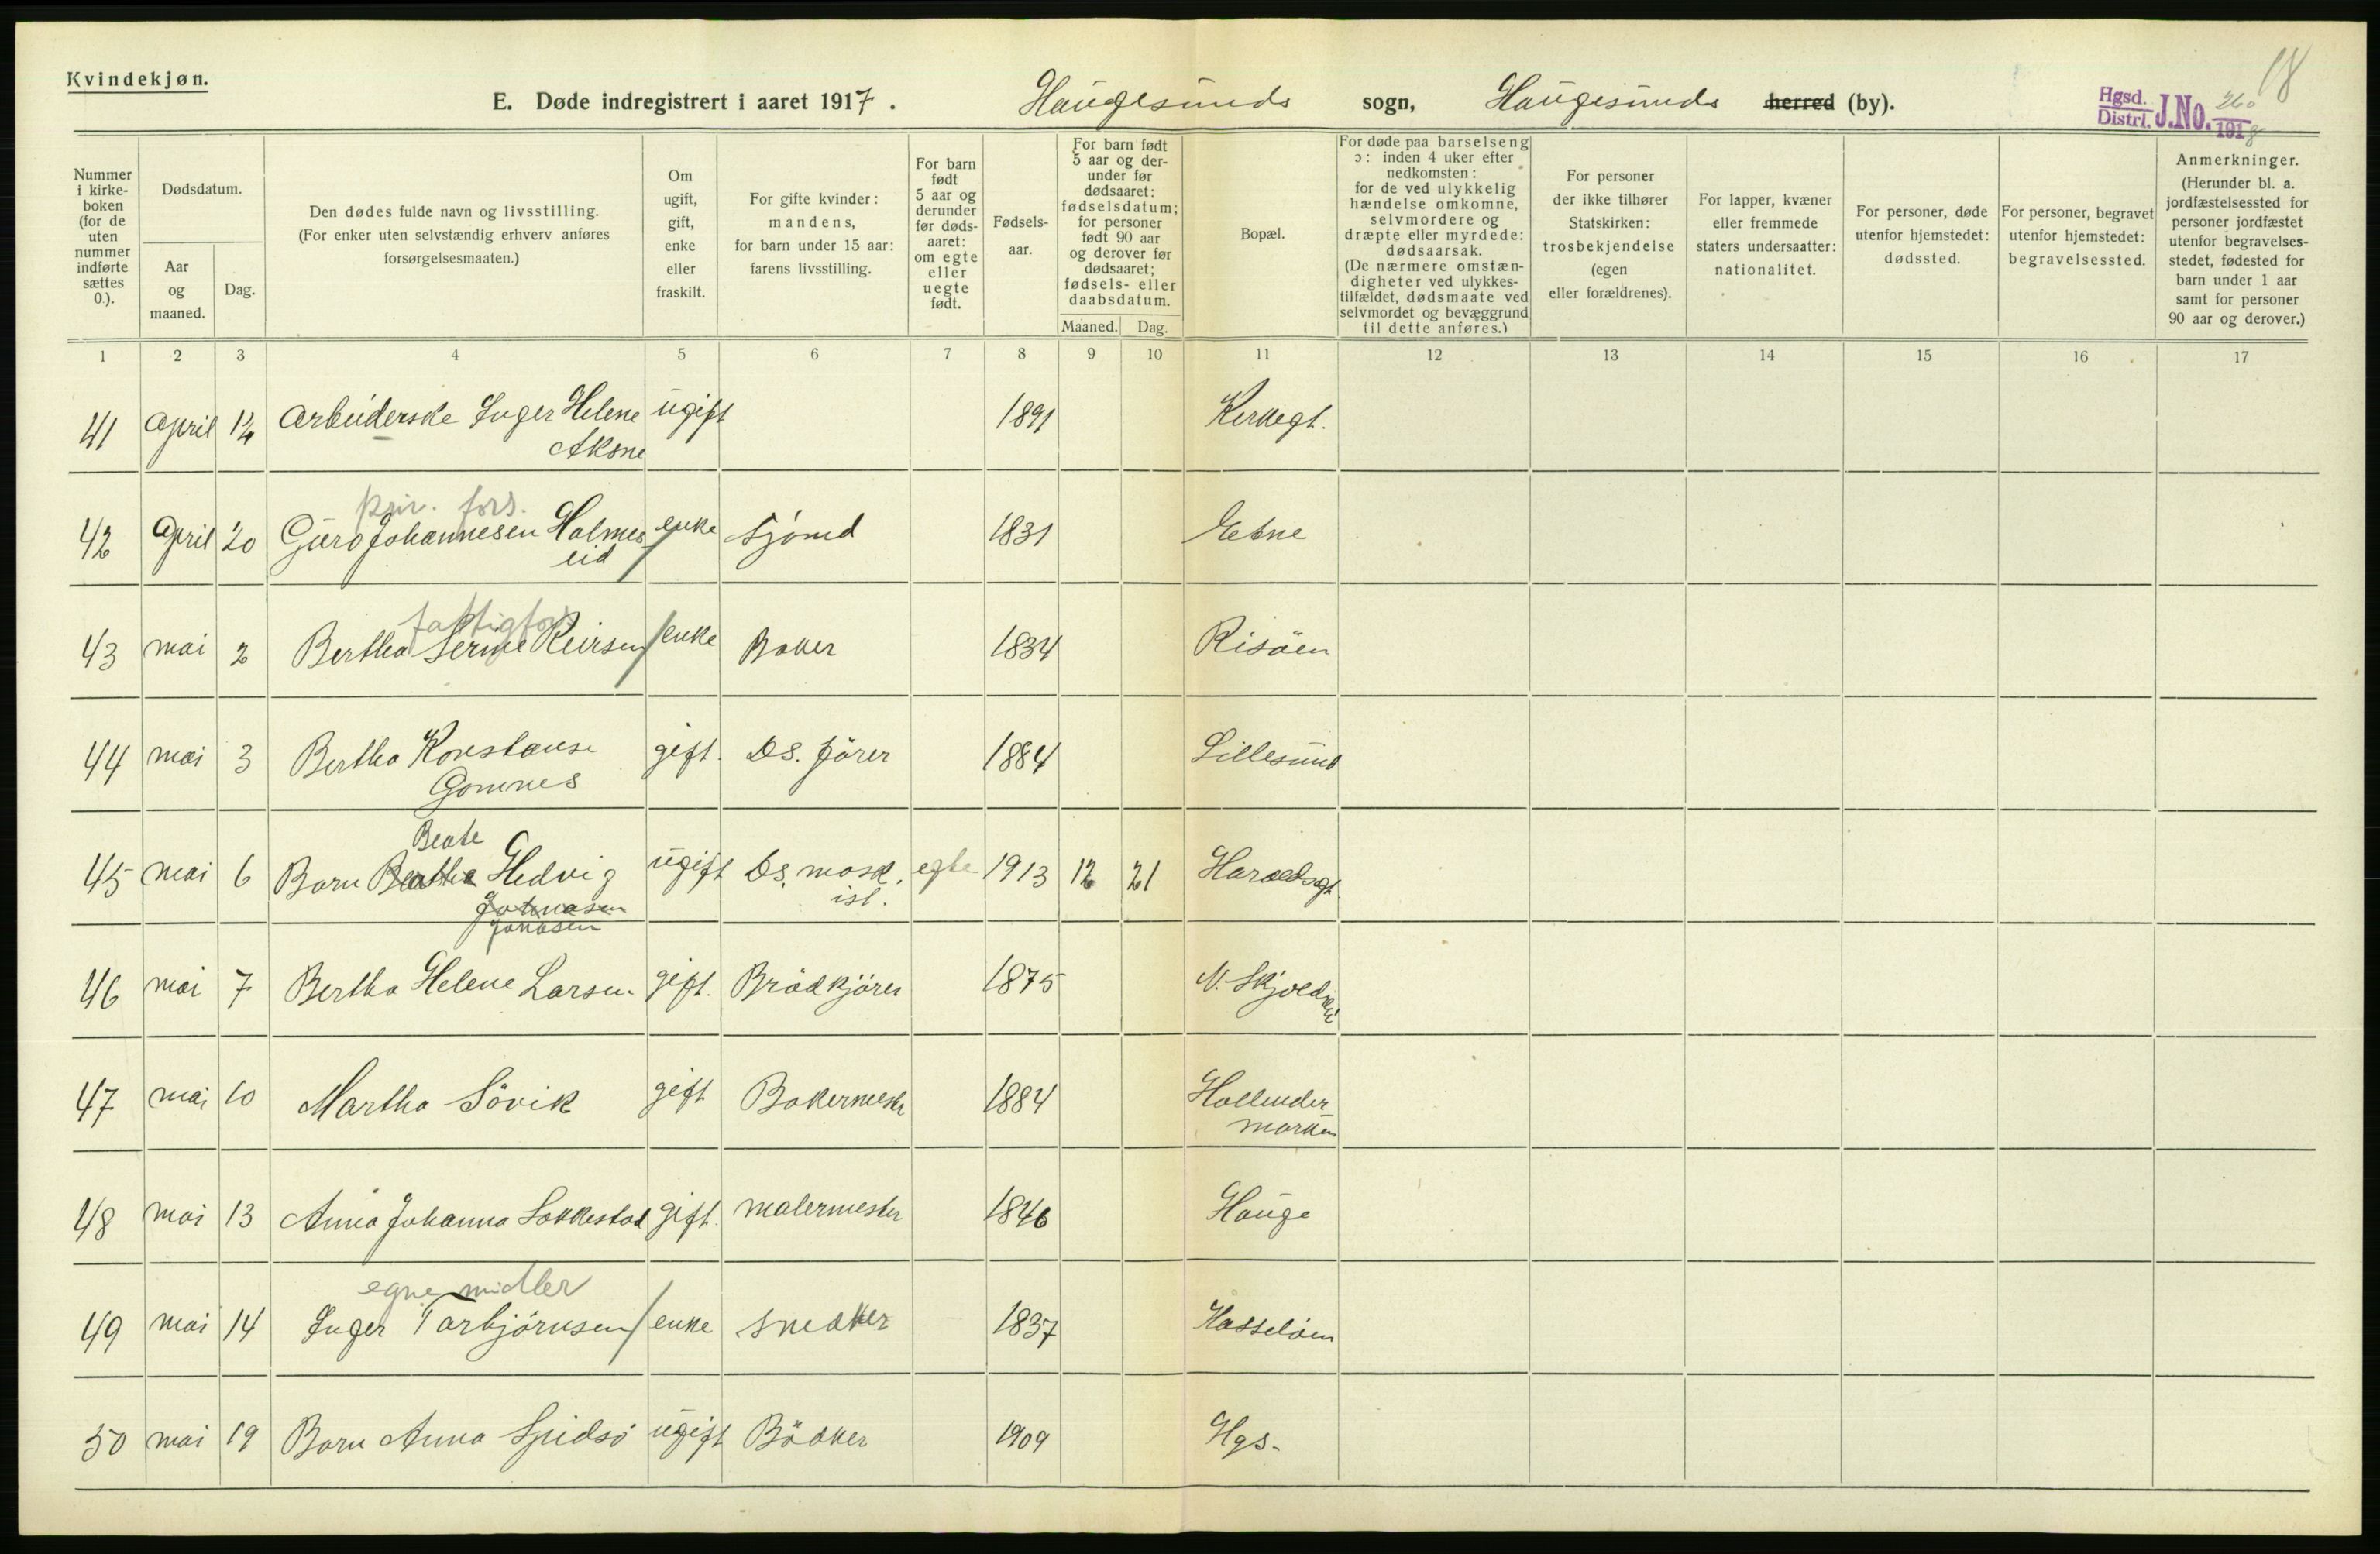 Kvindekjøn.
E. Døde indregistrert i aaret 1917. Haugesunds sogn, Haugesunds herred (by).
Hgsd. Distr. J.No. 260 1918
18
Nummer i kirkeboken (for de uten nummer indførte sættes 0.).
Dødsdatum.
Aar og maaned.
Dag.
Den dødes fulde navn og livsstilling. (For enker uten selvstændig erhverv anføres forsørgelsesmaaten.)
Om ugift, gift, enke eller fraskilt.
For gifte kvinder: mandens, for barn under 15 aar: farens livsstilling.
For barn født 5 aar og derunder før dødsaaret: om egte eller uegte født.
Fødselsaar.
For barn født 5 aar og derunder før dødsaaret: fødselsdatum; for personer født 90 aar og derover før dødsaaret; fødsels- eller daabsdatum.
Maaned. Dag.
Bopæl.
For døde paa barselseng ɔ: inden 4 uker efter nedkomsten: for de ved ulykkelig hændelse omkomne, selvmordere og dræpte eller myrdede: dødsaarsak. (De nærmere omstændigheter ved ulykkestilfældet, dødsmaate ved selvmordet og bevæggrund til dette anføres.)
For personer der ikke tilhører Statskirken: trosbekjendelse (egen eller forældrenes).
For lapper, kvæner eller fremmede staters undersaatter: nationalitet.
For personer, døde utenfor hjemstedet: dødssted.
For personer, begravet utenfor hjemstedet: begravelsessted.
Anmerkninger. (Herunder bl. a. jordfæstelsessted for personer jordfæstet utenfor begravelsesstedet, fødested for barn under 1 aar samt for personer 90 aar og derover.)
1 2 3 4 5 6 7 8 9 10 11 12 13 14 15 16 17
41 April 14 Arbeiderske Inger Helene Aksne ugift 1891 Kirkegt.
priv. fors.
42 April 20 Guro Johannesen Holmeseid enke Sjömd 1831 Etne
fattigfors.
43 mai 2 Bertha Serine Reiersen enke Baker 1834 Risöen
44 mai 3 Bertha Konstanse Gomnes gift. DS. förer 1884 Lillesund
Beate
45 mai 6 Barn Bertha Hedvig Johnasen ugift Ds. maskist. egte 1913 12 21 Haraldsgt.
Jonasen
46 mai 7 Bertha Helene Larsen gift. Brödkjörer 1875 N. Skjoldav.
47 mai 10 Martha Sövik gift Bakermester 1884 Hollendermarken
48 mai 13 Anna Johanna Sokkestad gift. malermester 1846 Hauge
egne midler
49 mai 14 Inger Torbjörnsen enke snedker 1837 Hasselöen
50 mai 19 Barn Anna Spidsö ugift Bödker 1909 Hgs.